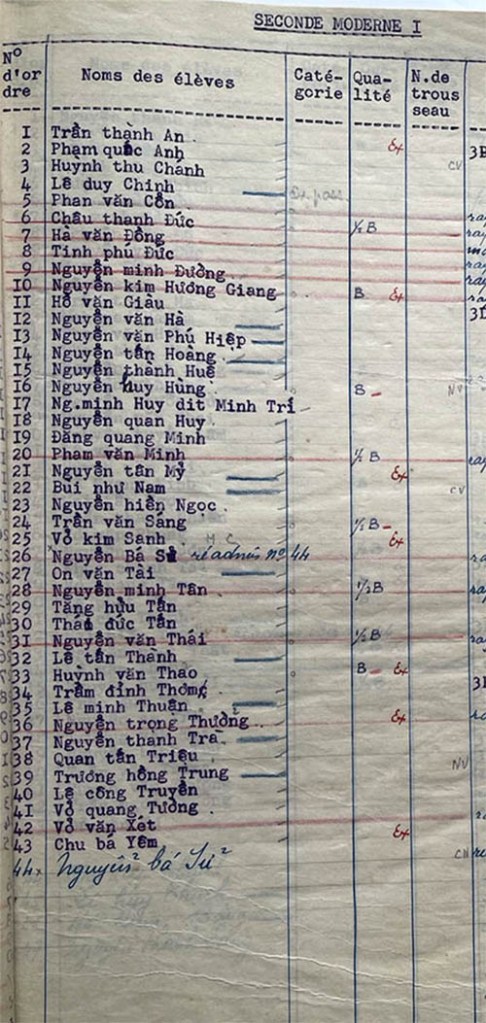 SECONDE MODERNE I
N° d'or dre Noms des élèves Caté- gorie Qua- lité N.de trous seau
I Trần thành An
2 Phạm quốc Anh Ex 3E
3 Huỳnh thu Chánh CV
4 Lê duy Chinh
5 Phan văn Cồn
6 Châu thanh Đức ½ B
7 Hà văn Đồng
8 Tính phú Đức
9 Nguyễn minh Đường
IO Nguyễn kim Hương Giang B Ex
II Hồ văn Giàu
I2 Nguyễn văn Hà
I3 Nguyễn văn Phú Hiệp
I4 Nguyễn tấn Hoàng
I5 Nguyễn thành Huê
I6 Nguyễn huy Hùng B NV
I7 Ng.minh Huy dit Minh Trí
I8 Nguyễn quan Huy
I9 Đăng quang Minh
20 Phạm văn Minh ½ B
2I Nguyễn tấn Mỹ Ex
22 Bùi như Nam CV
23 Nguyễn hiền Ngọc
24 Trần văn Sáng ½ B
25 Vỏ kim Sanh M C Ex
26 Nguyễn Bá Sử réadmis n° 44
27 Ôn văn Tài
28 Nguyễn minh Tân ½ B
29 Tăng hữu Tấn
30 Thái đức Tấn
3I Nguyễn văn Thái ½ B
32 Lê tấn Thành
33 Huỳnh văn Thao B Ex
34 Trầm đình Thơm
35 Lê minh Thuận
36 Nguyễn trọng Thưởng Ex
37 Nguyễn thanh Trà
38 Quan tấn Triệu NV
39 Trương hồng Trung
40 Lê công Truyền
4I Vỏ quang Tường
42 Vỏ văn Xét Ex
43 Chu bá Yêm
44x Nguyễn bá Sử